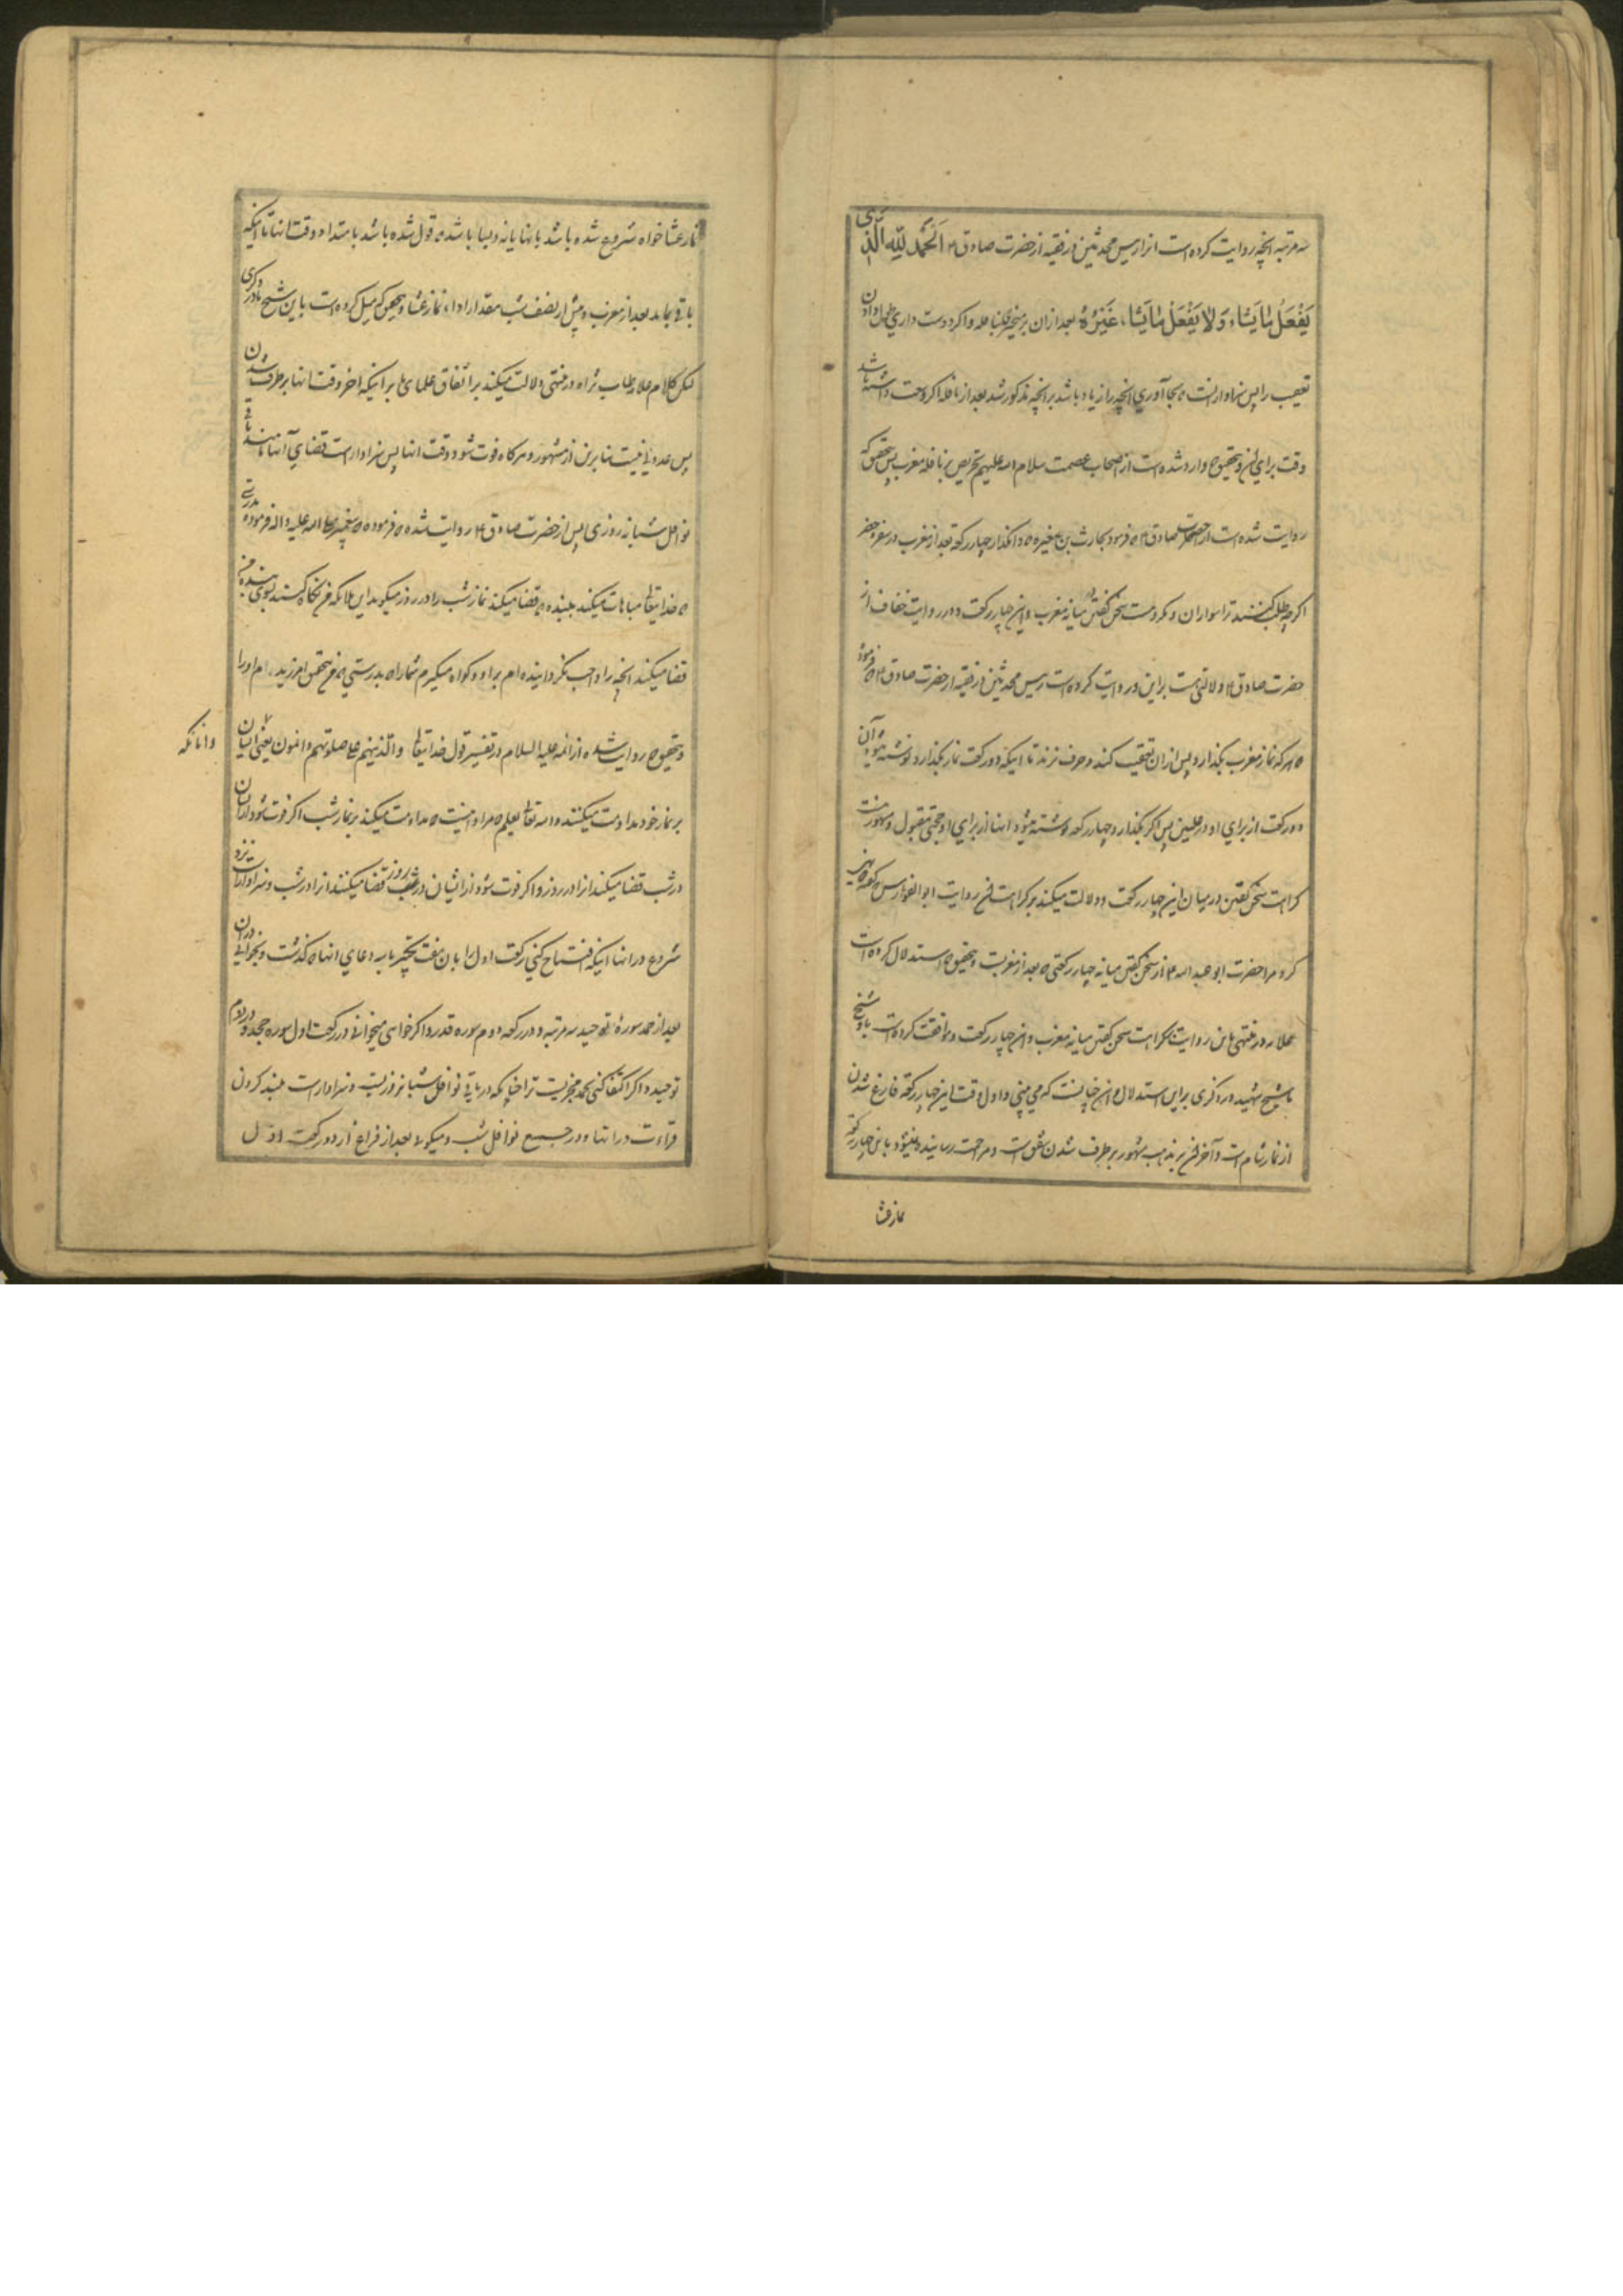 سه مرتبه انچه روایت کرده است انرا رییس محدثین در فقیه از حضرت صادق ع اَلحَمْدُ لِلّهِ الَّذی
یَفْعَلُ مایَشاء وَلا یَفْعَلُ مایَشاء غَیْرُهُ بعد ازان برمیخیزی بنافله و اکر دوست داری طول دادن
تعقیب را پس سزاوار انست که بجا آوری انچه را زیاد باشد بر انچه مذکور شد بعد از نافله اکر وسعت داشته باشد
وقت برای ان و بتحقیق که وارد شده است از اصحاب عصمت سلام الله علیهم تحریص بر نافله مغرب پس بتحقیق که
روایت شده است از حضرت صادق ع که فرمود بحارث بن مغیره که وامکذار چهار رکعة بعد از مغرب در سفر و حضر
اکرچه طلب کنند ترا سواران و مکروهست سخن کفتن میانه مغرب و این چهار رکعت و در روایت خفاف از
حضرت صادق ع دلالتی هست بر این و روایت کرده است رییس محدثین در فقیه از حضرت صادق ع که فرمود
که هر که نماز مغرب بکذارد و پس ازان تعقیب کند و حرف نزند تا اینکه دو رکعت نماز بکذارد نوشته میشود آن
دو رکعت از برای او در علیین پس اکر بکذارد چهار رکعه نوشته میشود انها از برای او حجتی مقبول و مشهور است
کراهت سخن کفتن در میان این چهار رکعت و دلالت میکند بر کراهت ان روایت ابو الفوارس که کفته نهی
کرد مرا حضرت ابو عبد الله ع از سخن کفتن میانه چهار رکعتی که بعد از مغربست و بتحقیق که استدلال کرده است
علامه در منتهی باین روایت بکراهت سخن کفتن میانه مغرب و این چهار رکعت و موافقت کرده است با او شیخ
ما شیخ شهید در ذکری بر این استدلال و ان چنانست که می بینی و اول وقت این چهار رکعة فارغ شدن
از نماز شام است و آخر ان بر مذهب مشهور برطرف شدن شفق است و مزاحمت رسانیده نمیشود باین چهار رکعة
نماز عشا
نماز عشا خواه شروع شده باشد بانها یا نه و بسا باشد که قول شده باشد بامتداد وقت انها تا اینکه
باقی بماند بعد از مغرب و پیش از نصف شب مقدار ادای نماز عشا و بتحقیق که میل کرده است باین شیخ ما در ذکری
لیکن کلام علامه طاب ثراه در منتهی دلالت میکند بر اتفاق علمای ما بر اینکه اخر وقت انها برطرف شدن
پس عدولی نیست بنابرین از مشهور و هرکاه فوت شود وقت انها پس سزاوار است قضای آنها مانند باقی
نوافل شبانه روزی پس از حضرت صادق ع روایت شده که فرموده که پیغمبر صلی الله علیه و اله فرموده بدرستی
که خدایتعالی مباهات میکند ببنده که قضا میکند نماز شب را در روز میکوید ای ملائکه من نکاه کنید بسوی بنده من
قضا میکند انچه را واجب نکردانیده ام بر او و کواه میکیرم شما را بدرستی که من بتحقیق امرزیده ام او را
و بتحقیق که روایت شده از ائمه علیه السلام در تفسیر قول خدایتعالی والّذینهم علی صلوتهم دائمون یعنی انانکه ایشان
و انانکه
بر نماز خود مداومت میکنند و الله تعالی یعلم که مراد اینست که مداومت میکنند بر نماز شب اکر فوت شود از ایشان
در شب قضا میکنند انرا در روز و اکر فوت شود از ایشان در روز قضا میکنند انرا در شب و سزاوار است نزد
شروع در انها اینکه افتتاح کنی رکعت اول را بان هفت تکبیر با سه دعای انها که کذشت و بخوانی دران
بعد از حمد سورۀ توحید سه مرتبه و در رکعه دوم سوره قدر و اکر خواهی میخوانی در رکعت اول سوره جحد و در دوم
توحید و اکر اکتفا کنی بحمد مجزیست ترا چنانکه در باقی نوافل شبانه روزیست و سزاوار است بلند کردن
قراءت در انها و در جمیع نوافل شب و میکوئی بعد از فراغ از دو رکعت اول